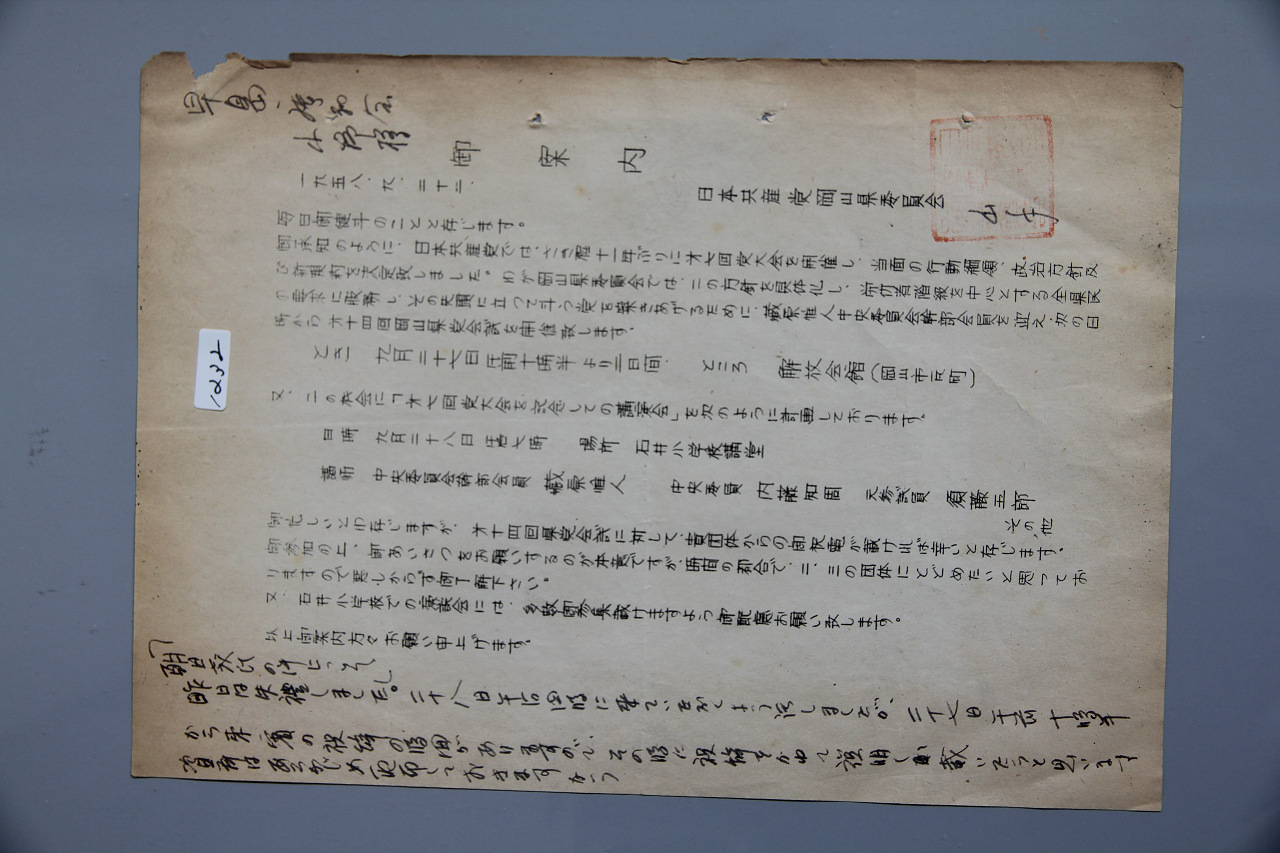 早島
小野様
御案内
一九五八、九、二十二、
日本共産党岡山県委員会
毎日御健斗のことと存じます。
御承知のように、日本共産党では、さる程十一年ぶりに才七回党大会を開催し、当面の行動綱領、政治方針及
び新規約を決定致しました。わが岡山県委員会では、この方針を具体化し、労竹者階級を中心とする全県民
の要求に服務し、その先頭に立つて斗う党を築きあげるために、蔵原惟人中央委員会幹部会員を迎え、次の日
時から才十四回岡山県党会議を開催致します。
とき 九月二十七日午前十時半より二日間、 ところ 解放会館(岡山市兵町)
又、この機会に「才七回党大会を記念しての講演会」を次のように計画しております。
日時 九月二十八日 午后七時 場所 石井小学校講堂
講師 中央委員会幹部会員 蔵原惟人 中央委員 内藤知周 元参議員 須藤五郎
その他
御忙しいとわ存じますが、才十四回県党会議に対して、貴団体からの御祝意が戴ければ幸いと存じます。
御参加の上、御あいさつをお願いするのが本意ですが、時間の都合で、二、三の団体にとどめたいと思つてお
りますので悪しからず御了解下さい。
又、石井小学校での演説会には、多数御参集戴けますよう御配意お願い致します。
以上御案内方々お願い申上げます。
朝日訴訟の件について
昨日は失禮しました。二十八日午后四時に来ていただくよう話しましたが、二十七日午前十時半
から来賓の挨拶の時間がありますので、その時に挨拶をかねて説明し戴いたらと思います
資料はあらかじめ配布しておきますから
1232